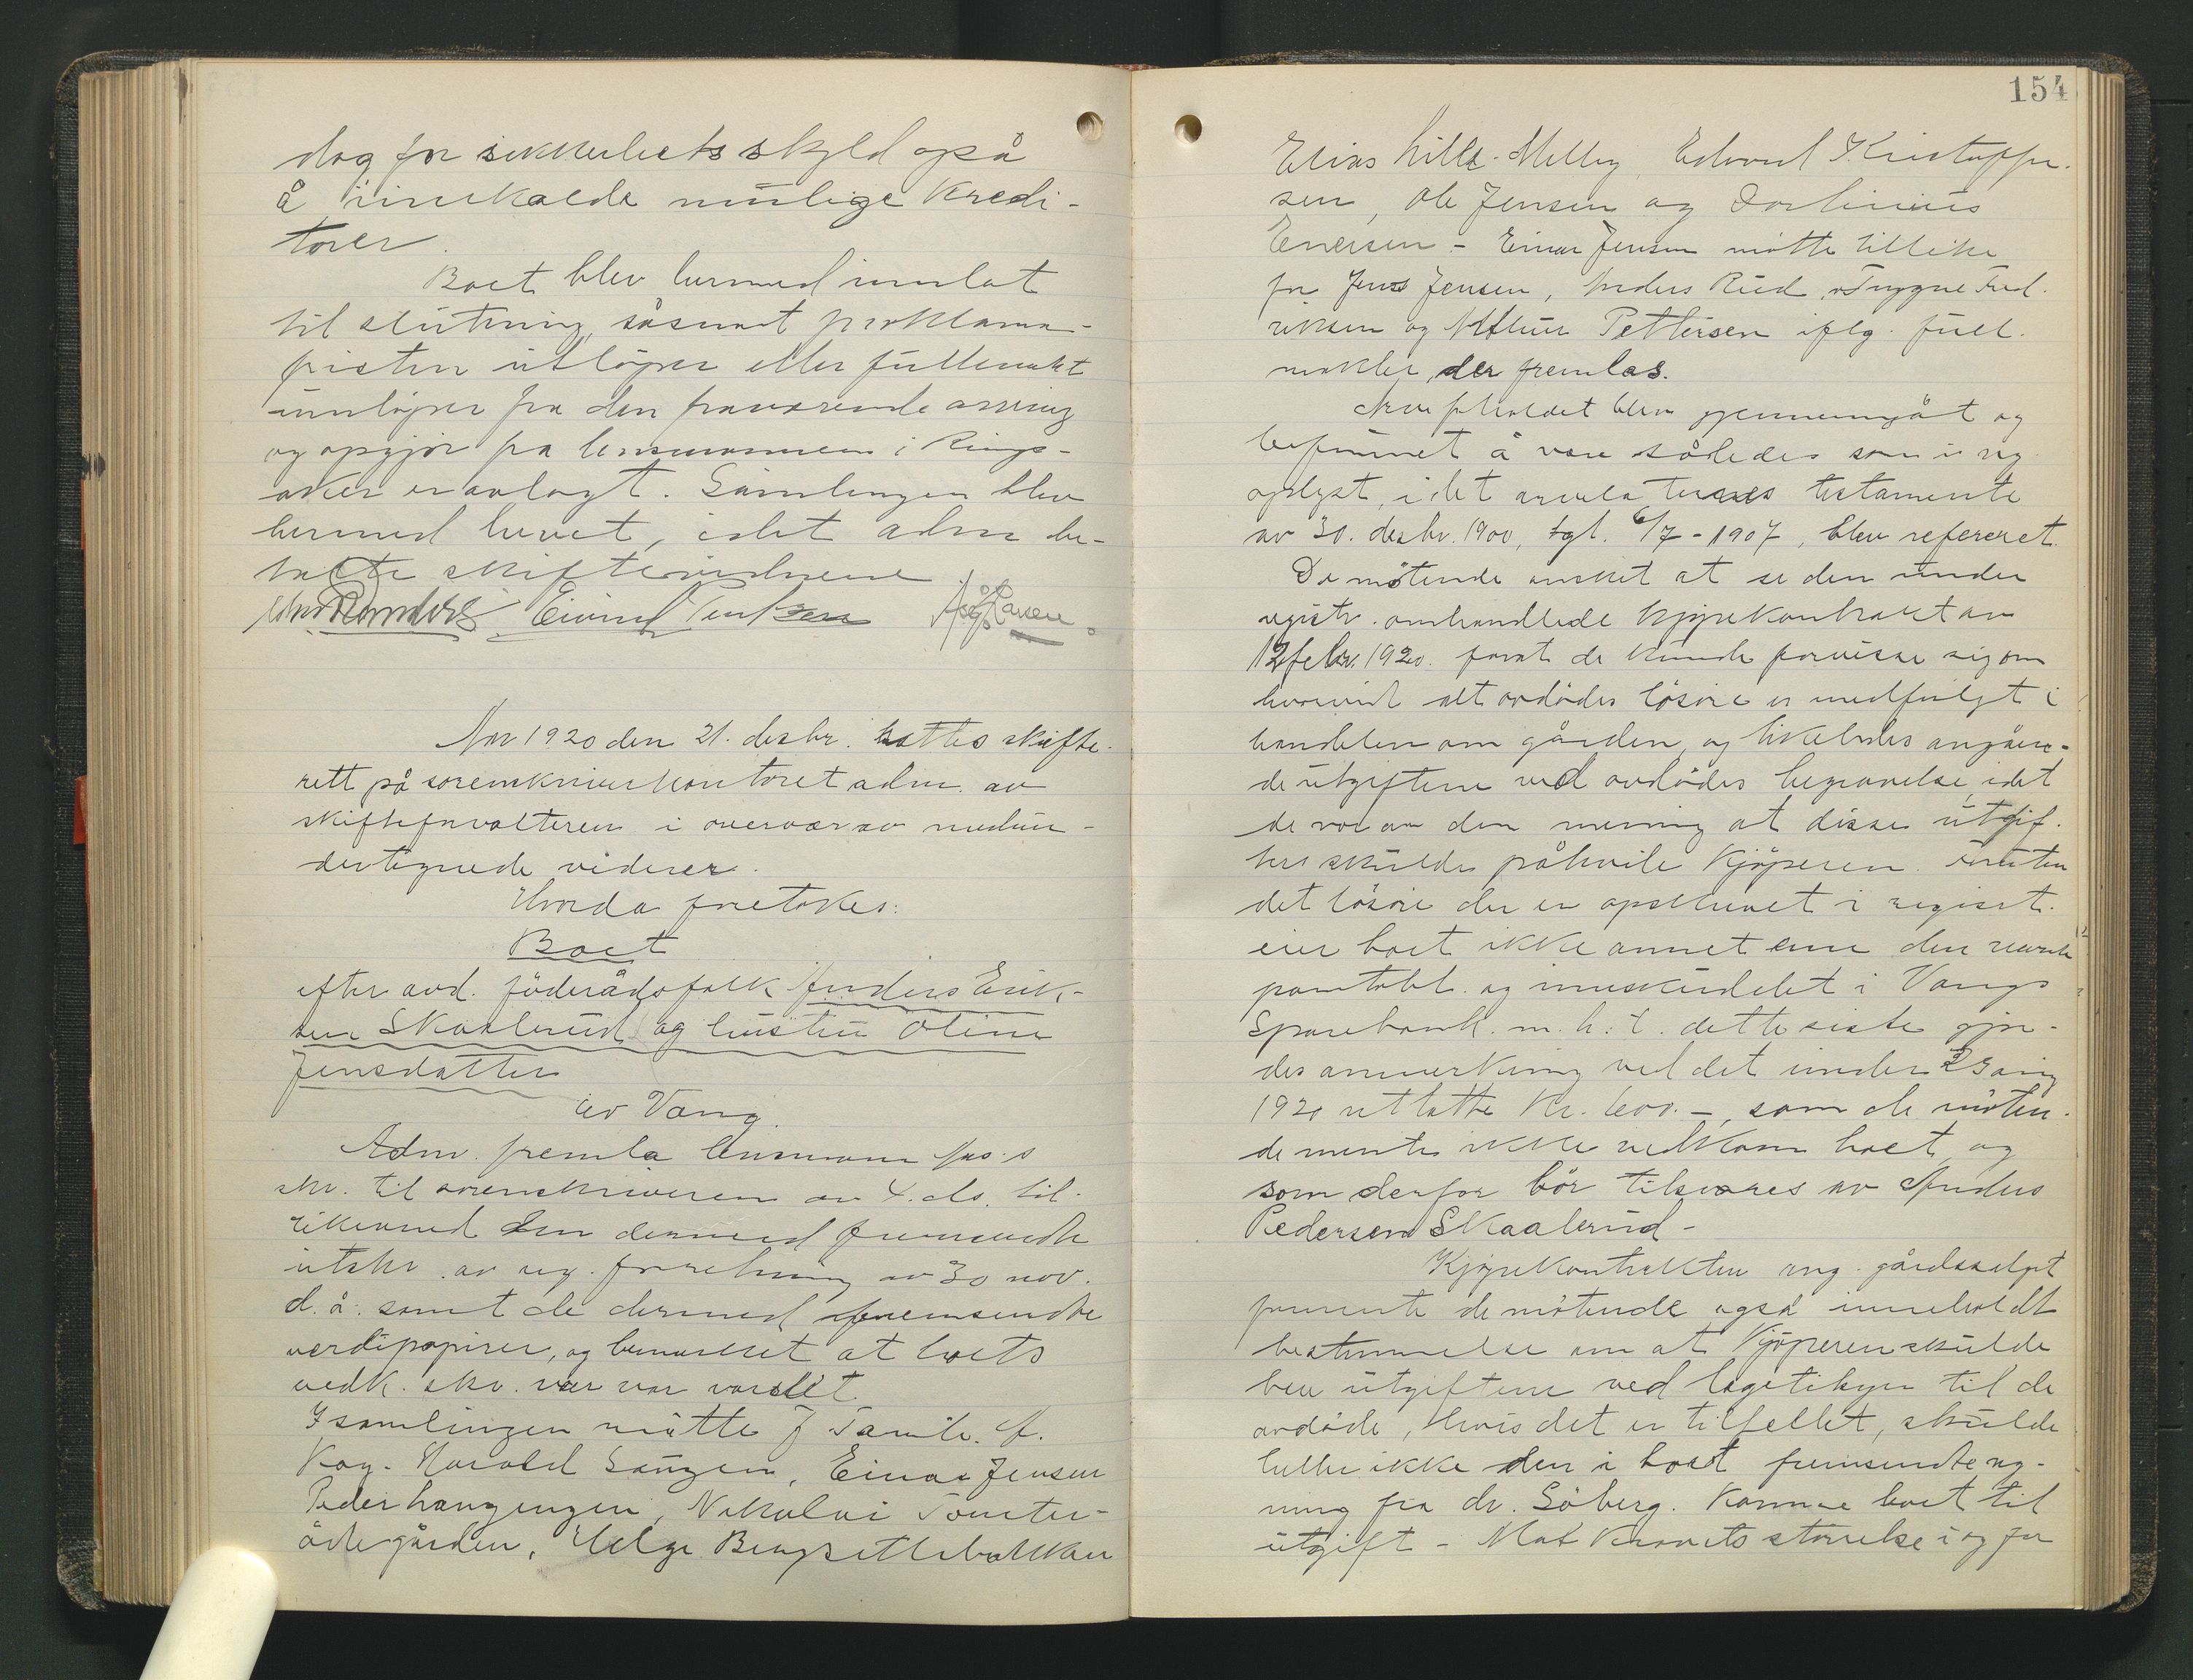 dag for sikkerhets skyld også
å innkalde mulige kredi-
torer.
Boet blev hermed innlat
til slutning, såsnart proklama-
fristen utløper eller fullmakt
innløper fra den fraværende arving
og opgjør fra lensmannen i Rings-
aker er avlagt. Samlingen blev
hermed hevet, idet adm. be-
talte skiftevidnene
Eivind
Aar 1920 den 21. desbr. sattes skifte-
rett på sorenskriverkontoret adm. av
skifteforvalteren i overvær av nedun-
dertegnede vidner.
Hvorda foretokes:
Boet
efter avd. föderådsfolk Anders Erik-
sen Skaalerud og hustru Oline
Jensdatter
av Vang.
Adm. fremla lensmann
skr. til sorenskriveren av 4. ds. til-
likemed den dermed fremsendte
utskr. av reg. forretning av 30 nov.
d. å. samt de dermed fremsendte
verdipapirer, og bemerket at boets
vedk. skr. var varslet.
I samlingen møtte J
Harald Sangen, Einar Jensen
Peder Langengen, Nikolai Tomter-
ödegården, Helge Bergsettebakken
154
Elias Lille-Melby, Edvard Kristoffer-
sen, Ole Jensen og Dorthinius
Enersen - Einar Jensen møtte tillike
for Jens Jensen, Anders Rud, Trygve Fred-
riksen og Arthur Pettersen iflg. full-
makter der fremlas.
Arveforholdet blev gjennemgåt og
befunnet å være således som i reg
oplyst, idet testamente
av 30. desbr. 1900, tgl. 6/7 - 1907, blev referert.
De møtende ønsket at se den under
registr. omhandlede kjøpekontrakt av
12 febr. 1920. forat de kunde forvisse sig om
hvorvidt alt avdödes lösöre er medfulgt i
handelen om gården, og likeledes angåen-
de utgiftene ved avdödes begravelse, idet
de var av den mening at disse utgif-
ter skulde påhvile kjöperen. Foruten
det lösöre der er opskrevet i regist.
eier boet ikke annet enn den
pantobl. og innskuddet i Vangs
Sparebank. m. h. t. dette siste gjor-
des anmerkning ved det under 23 aug
1920 uttatte Kr. 600.-, som de møten-
de mente ikke vedkom boet og
som derfor bör tilsvares av Anders
Pedersen Skaalerud -
Kjøpekontrakten ang. gårdssalget
formente de møtende også inneholdt
bestemmelse om at kjöperen skulde
bære utgiftene ved legetilsyn til de
avdöde, hvis det er tilfellet, skulde
heller ikke den i boet fremsendte reg-
ning fra dr. Söberg. komme boet til
utgift - Mot kravets størrelse i og for